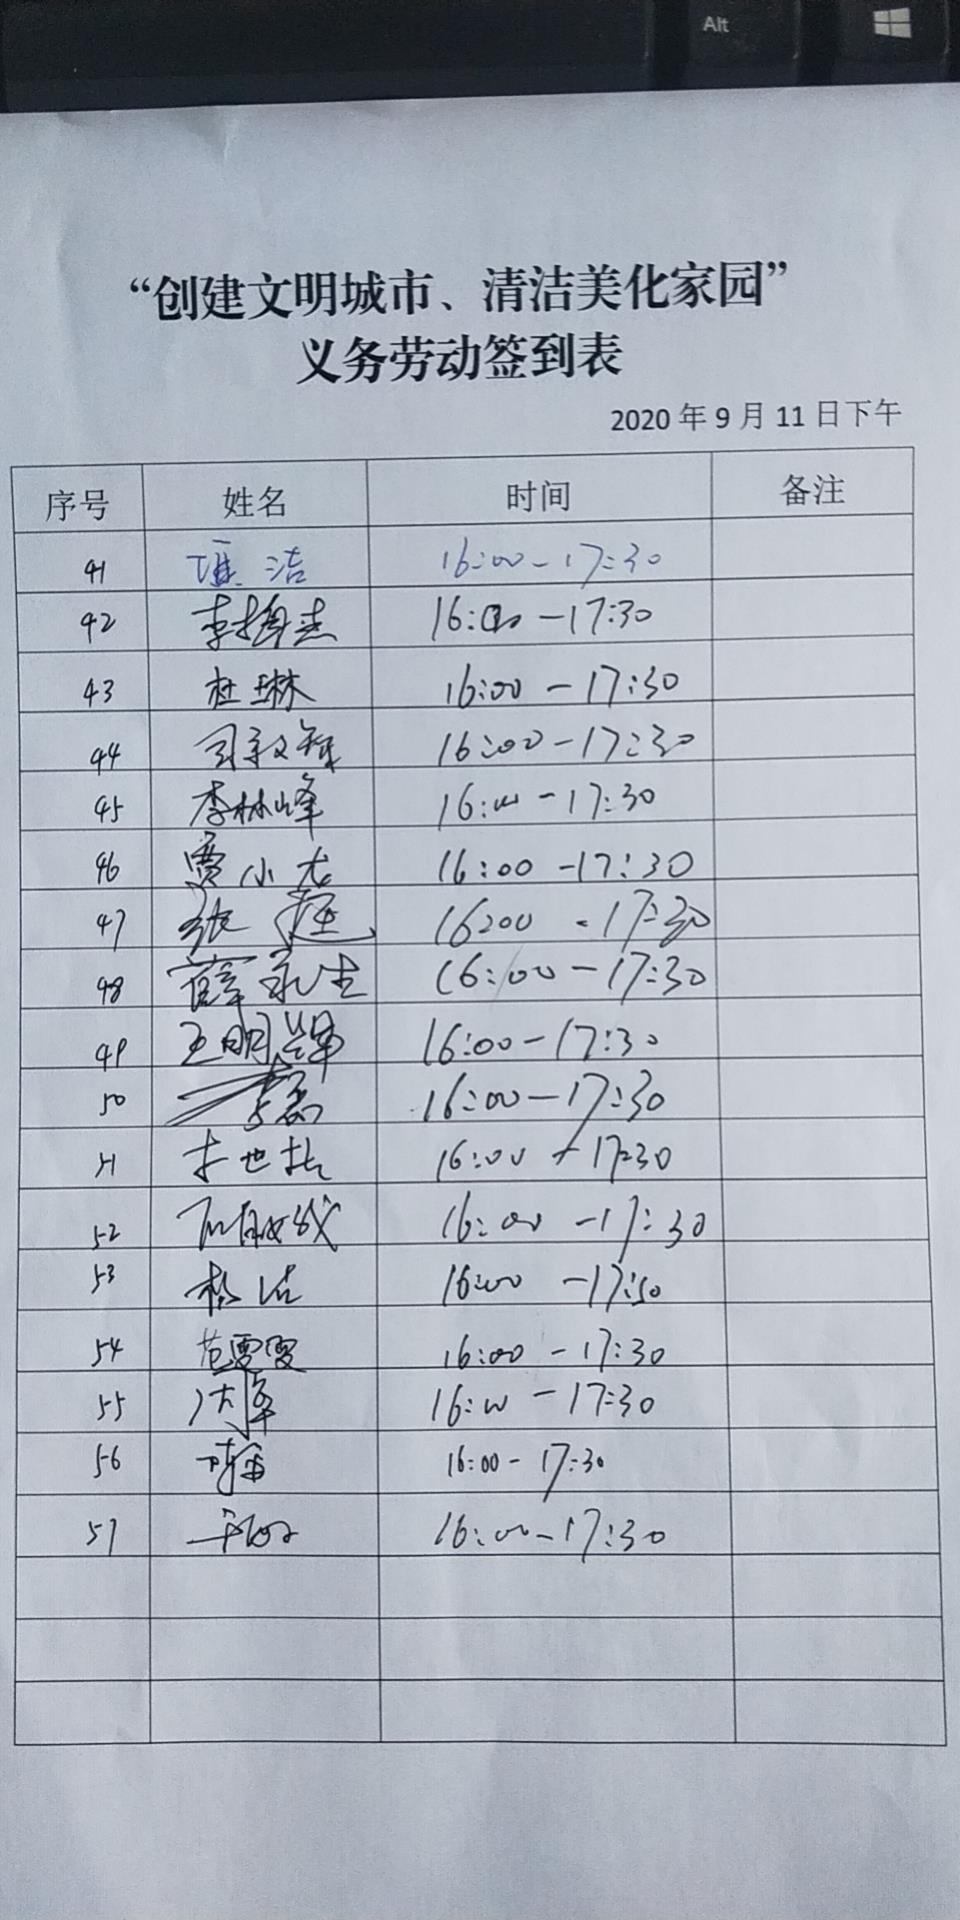 Alt
“创建文明城市、清洁美化家园”
义务劳动签到表
2020年9月11日下午
序号 姓名 时间 备注
41 洁 16:00-17:30
42 李 16:00-17:30
43 杜琳 16:00-17:30
44 16:00-17:30
45 李林峰 16:00-17:30
46 贾小龙 16:00-17:30
47 张 16:00-17:30
48 薛永生 16:00-17:30
49 王明辉 16:00-17:30
50 李磊 16:00-17:30
51 16:00-17:30
52 16:00-17:30
53 杨洁 16:00-17:30
54 范雯雯 16:00-17:30
55 16:00-17:30
56 16:00-17:30
57 16:00-17:30